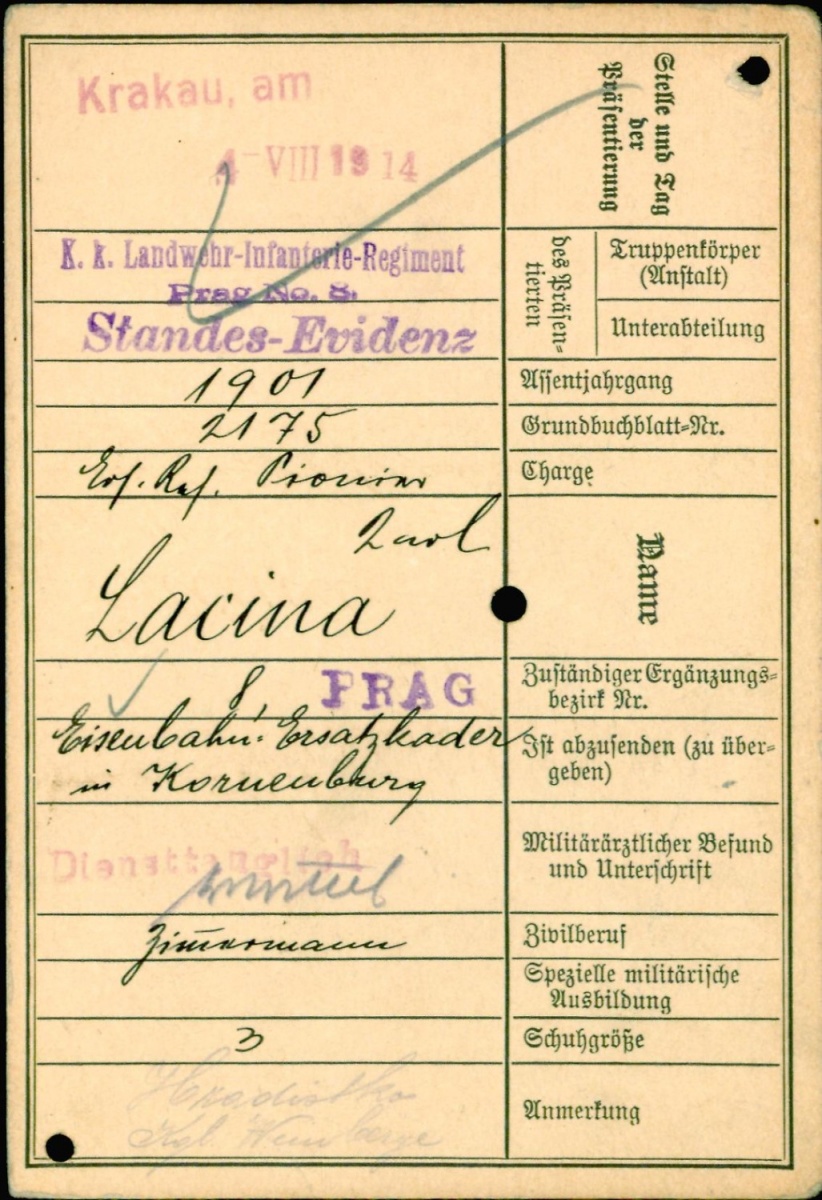 Krakau, am
4 - VIII 1914
Stelle und Tag
der
Präsentierung
K. k. Landwehr-Infanterie-Regiment
Prag No. 8.
des Präsen-
tierten
Truppenkörper
(Anstalt)
Standes-Evidenz
Unterabteilung
1901
Assentjahrgang
2175
Grundbuchblatt-Nr.
Ers. Res. Pionier
Charge
Karl
Lacina
Name
8, PRAG
Zuständiger Ergänzungs-
bezirk Nr.
Eisenbahn-Ersatzkader
in Korneuburg
Ist abzusenden (zu über-
geben)
Diensttauglich
Militärärztlicher Befund
und Unterschrift
Zimmermann
Zivilberuf
Spezielle militärische
Ausbildung
3
Schuhgröße
Hradistko
Kgl. Weinberge
Anmerkung